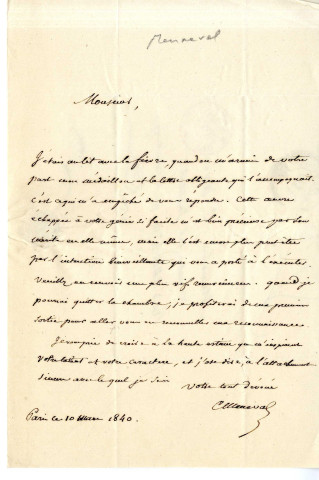 Menneval
Monsieur,
J'étais au lit avec la fièvre, quand on m'a remis de votre
part un médaillon et la lettre obligeante qui l'accompagnait.
C'est ce qui m'a empêché de vous répondre. Cette œuvre
échappée à votre génie si facile m'est bien précieuse par son
mérite en elle même, mais elle l'est encore plus peut-être
par l'intention bienveillante qui vous a porté à l'exécuter.
Veuillez en recevoir mes plus vifs remerciemens. quand je
pourrai quitter la chambre, je profiterai de ma première
sortie pour aller vous en renouveller ma reconnaissance.
Je vous prie de croire à la haute estime que m'inspirent
votre talent et votre caractère, et j'ose dire, à l'attachement
sincère avec lequel je suis
Votre tout dévoué
Meneval
Paris ce 10 Mars 1840.